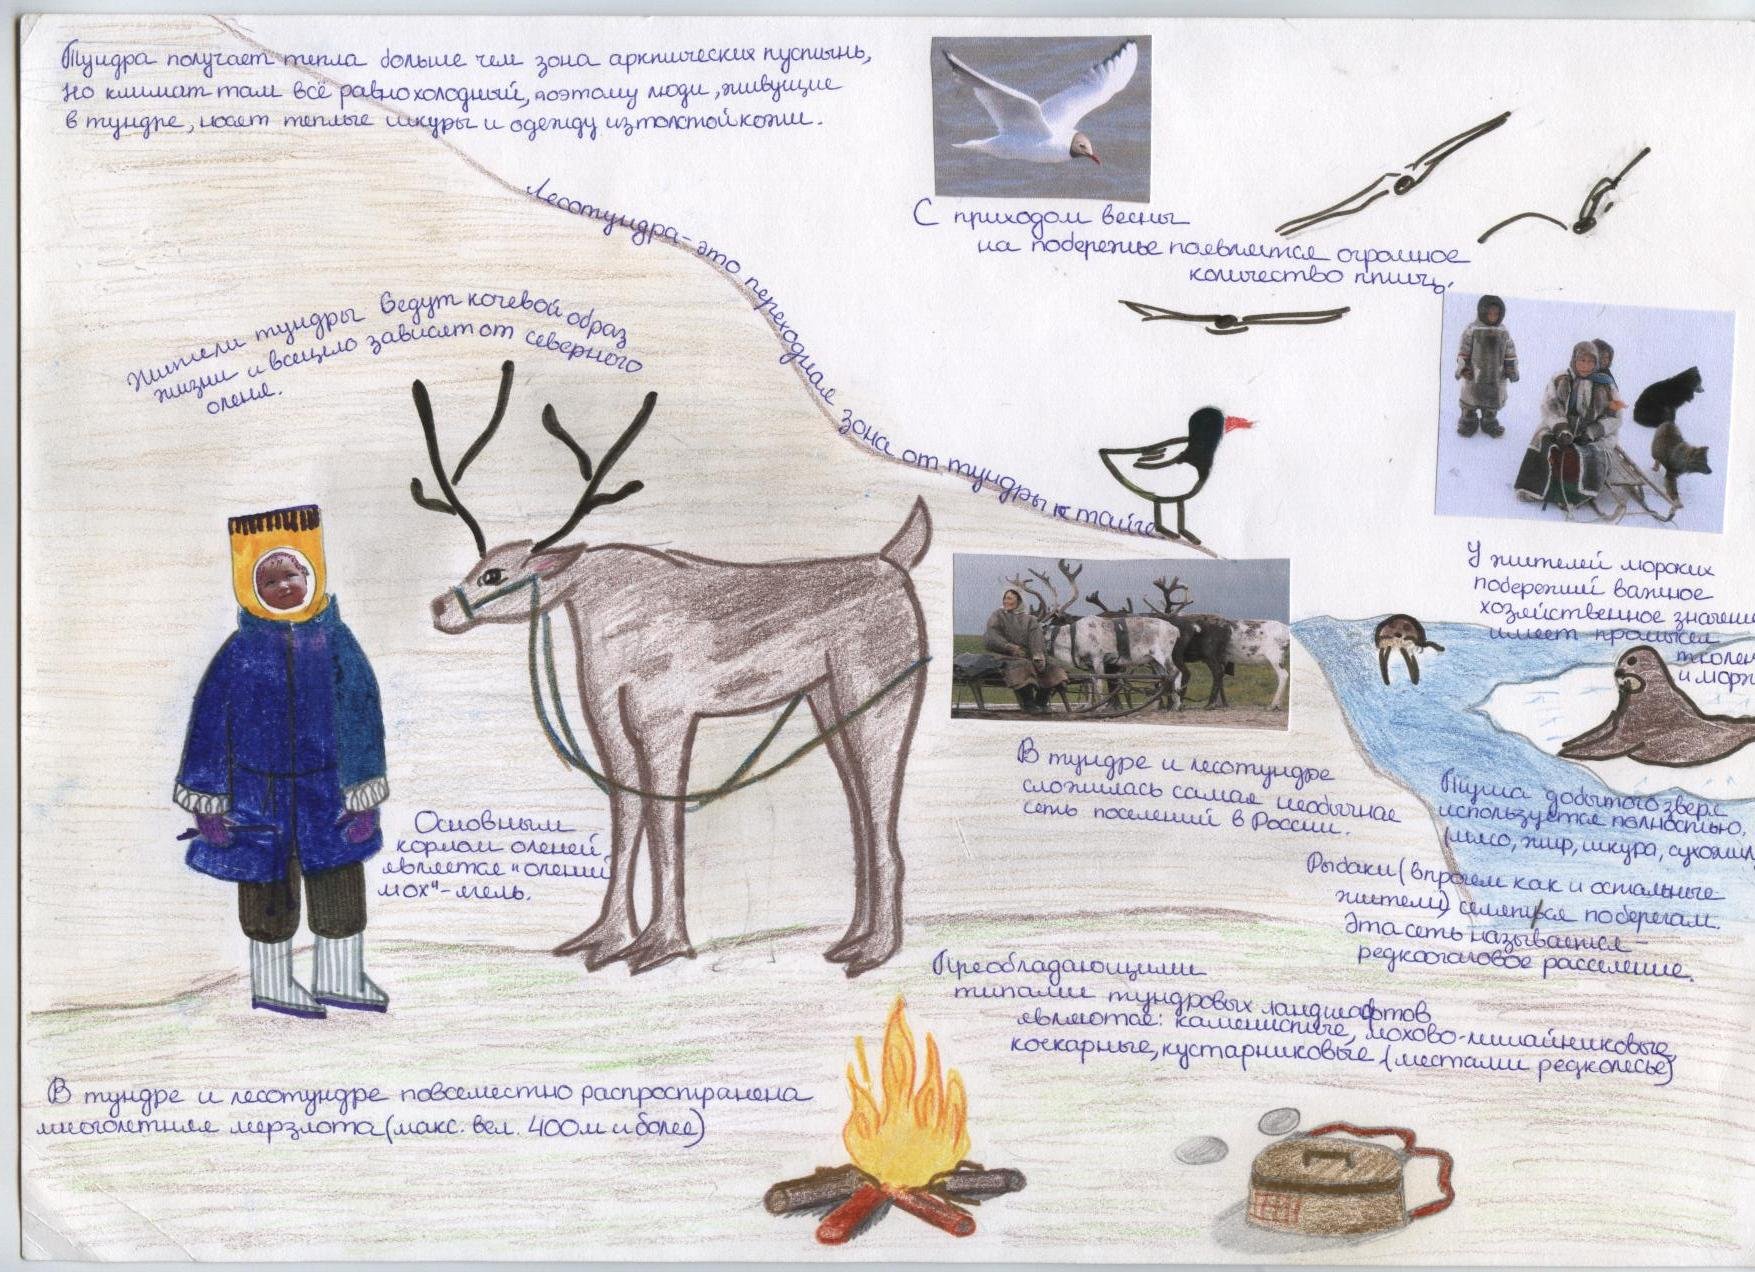 Тундра получает тепла больше чем зона арктических пустынь,
Но климат там всё равно холодный, поэтому люди, живущие
в тундре, носят теплые шкуры и одежду из толстой кожи.
Лесотундра - это переходная зона от тундры к тайге
С приходом весны
на побережье появляется огромное
количество птиц.
Жители тундры ведут кочевой образ
жизни и всецело зависят от северного
оленя.
У жителей морских
побережий важное
хозяйственное значени
имеет промысел
тюлен
и морж
В тундре и лесотундре
сложилась самая необычная
сеть поселений в России.
Туша добытого зверя
используется полностью.
(мясо, жир, шкура, сухожил
Рыбаки (впрочем как и остальные
жители) селятся по берегам.
Эта сеть называется -
редкоочаговое расселение.
Основным
кормом оленей,
является "олений
мох" - ягель.
Преобладающими
типами тундровых ландшафтов
являются: каменистые, мохово-лишайниковые,
кочкарные, кустарниковые (местами редколесье)
В тундре и лесотундре повсеместно распространена
многолетняя мерзлота (макс. вел. 400м и более)